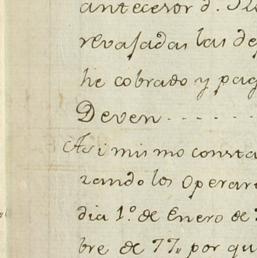 antecesor d.
revajadas las de
he cobrado y pag
Deven......
Asi mismo consta
zando los Operar
dia 1º de Enero de
bre de 77, por qu